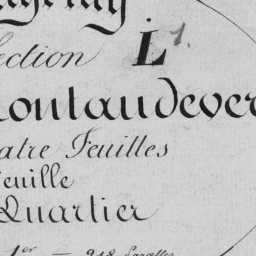 ection L 1.
ontaudever
atre Feuilles
euille
Quartier
1er — 218 Parcelles